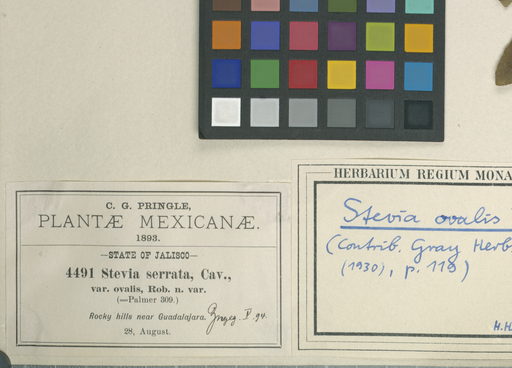 C. G. PRINGLE,
PLANTÆ MEXICANÆ.
1893.
—STATE OF JALISCO—
4491 Stevia serrata, Cav.,
var. ovalis, Rob. n. var.
(=Palmer 309.)
Rocky hills near Guadalajara.
V. 94.
28, August.
HERBARIUM REGIUM MONA
Stevia ovalis
(Contrib. Gray Herb.
(1930), p. 119)
H.H